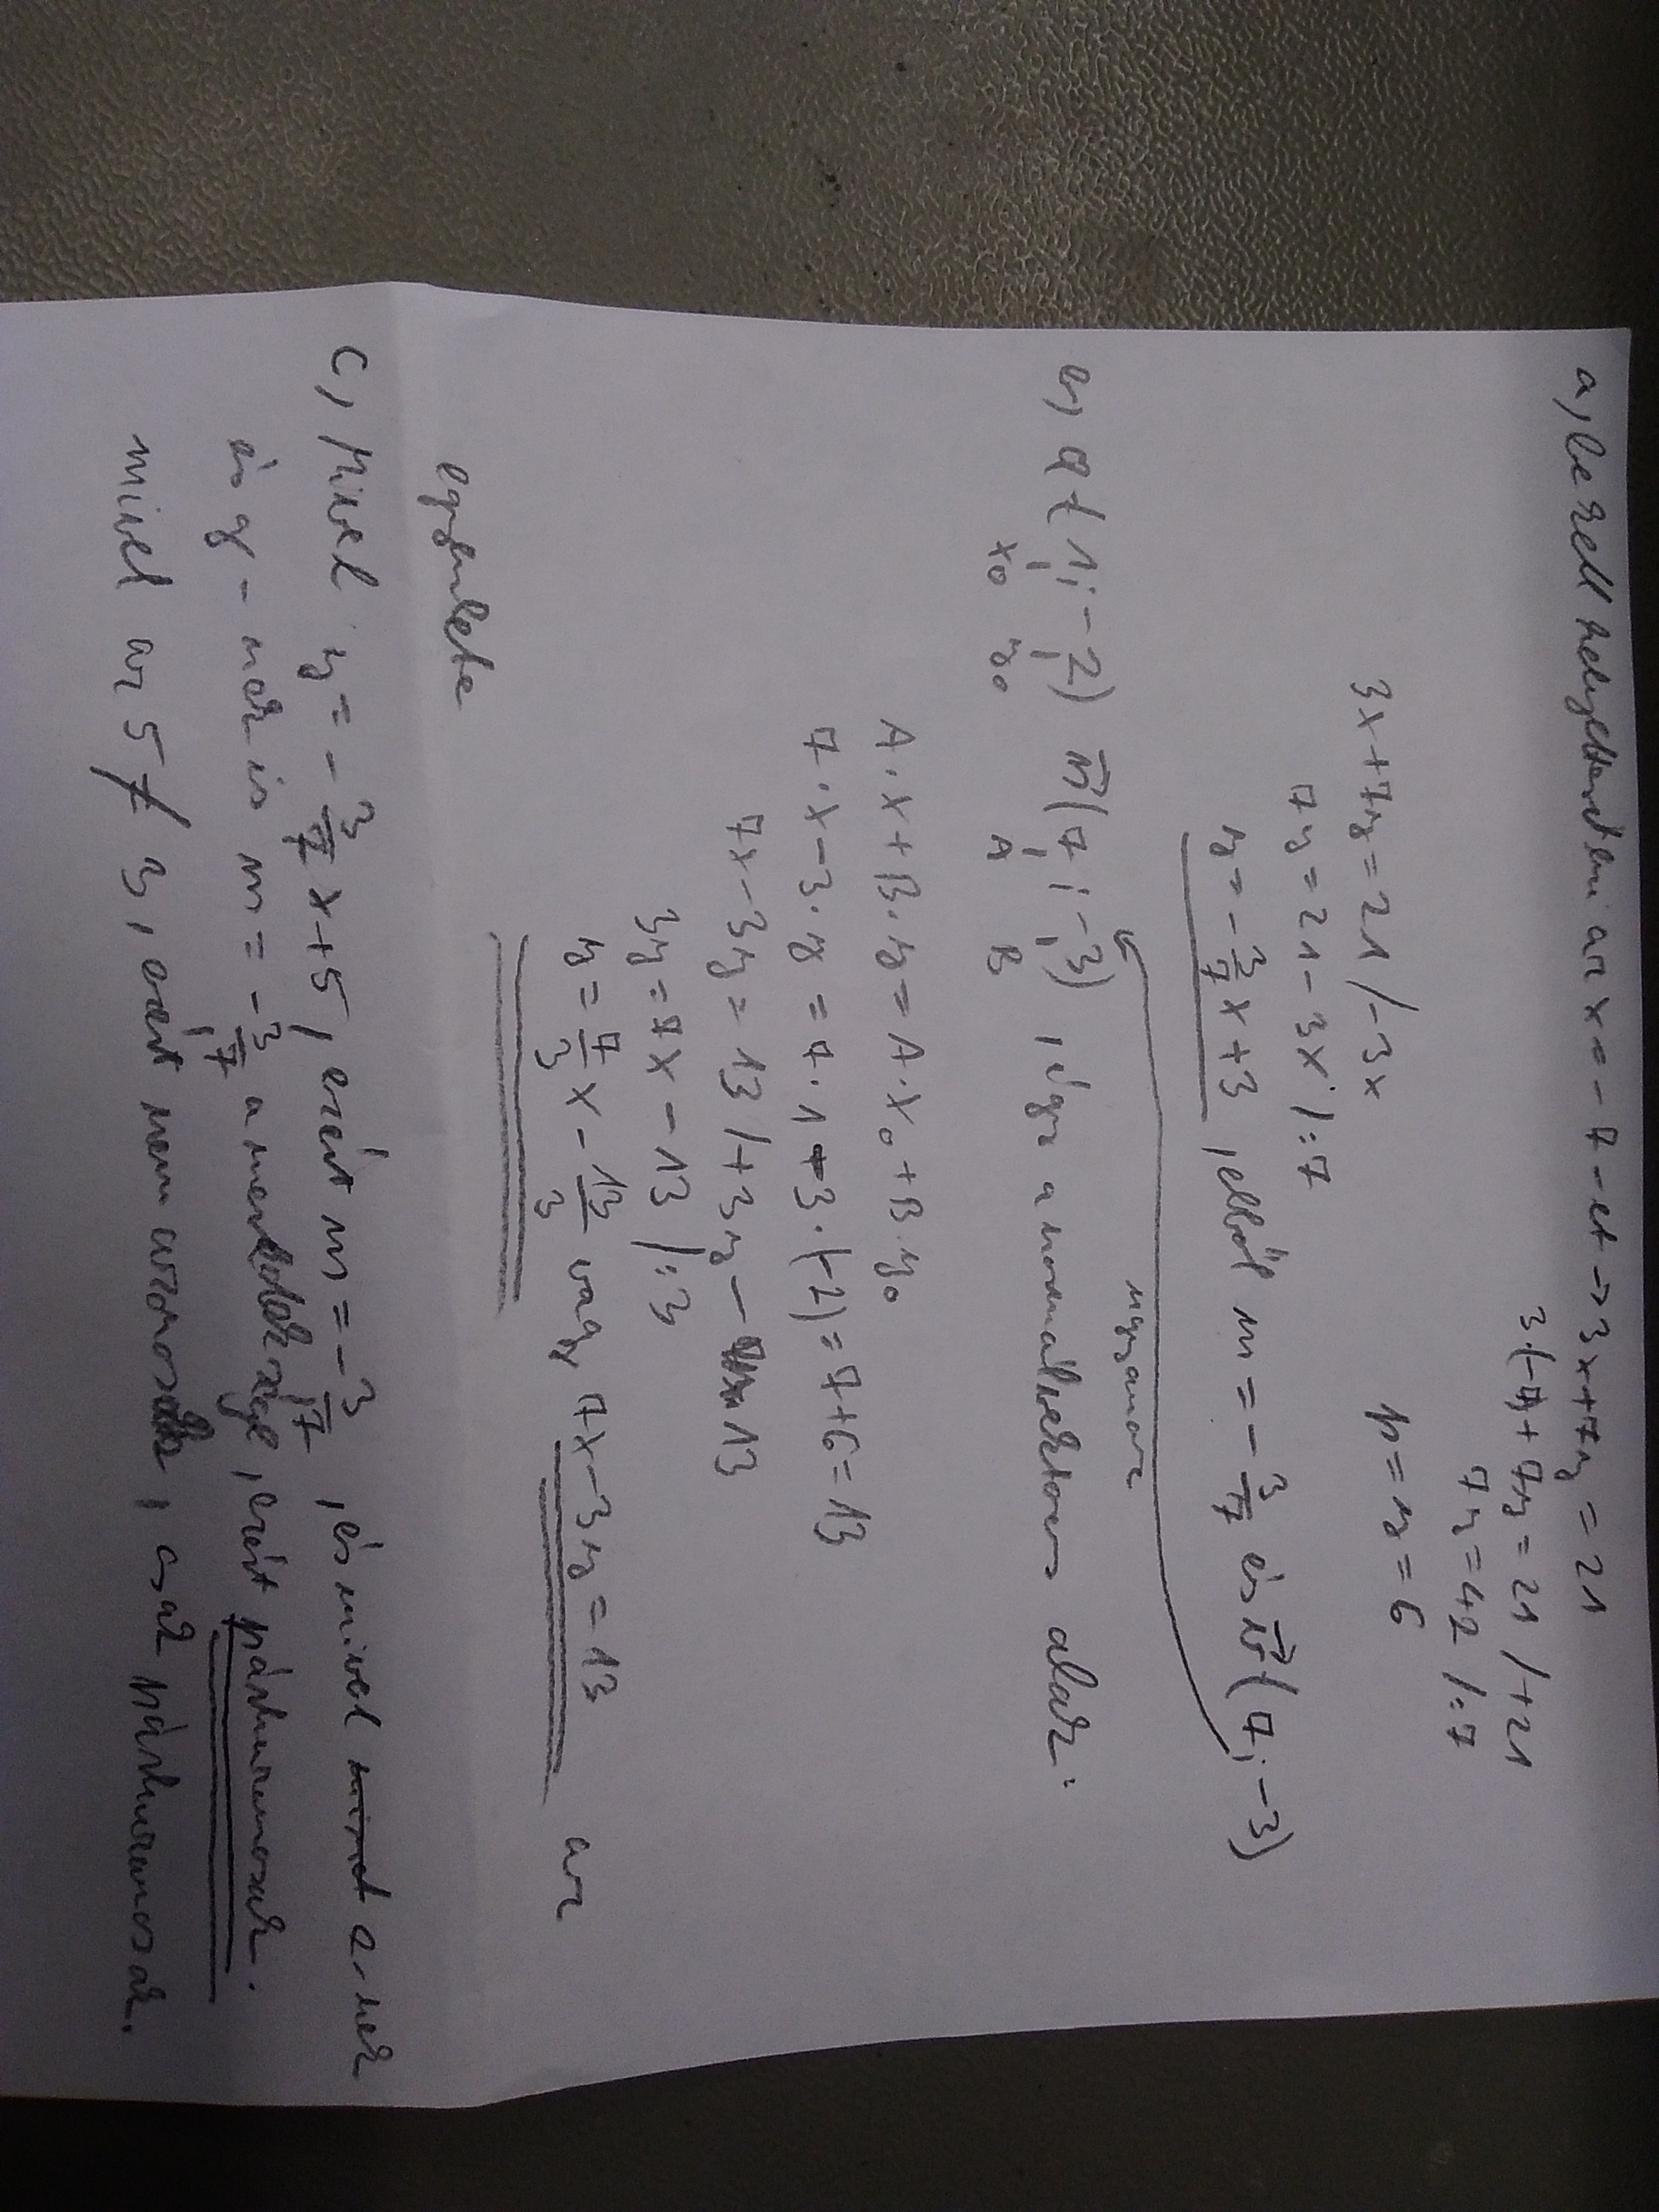 a, be kell helyettesíteni az x = -7-et → 3x+7y = 21
3·(-7)+7y = 21 /+21
7y = 42 /:7
p = y = 6
3x+7y = 21 /-3x
7y = 21 - 3x /:7
y = -3/7 x + 3, ebből m = -3/7 és v⃗(7; -3)
ugyanaz
b, Q(1; -2) n⃗(7; -3), így a normálvektoros alak:
x₀ y₀ A B
A·x + B·y = A·x₀ + B·y₀
7·x - 3·y = 7·1 - 3·(-2) = 7+6 = 13
7x - 3y = 13 /+3y - 13
3y = 7x - 13 /:3
y = 7/3 x - 13/3 vagy 7x - 3y = 13 az
egyenlete
c, Mivel y = -3/7 x + 5, ezért m = -3/7, és mivel e-nek
és g-nek is m = -3/7 a meredeksége, ezért párhuzamosak.
mivel az 5 ≠ 3, ezért nem azonosak, csak párhuzamosak.